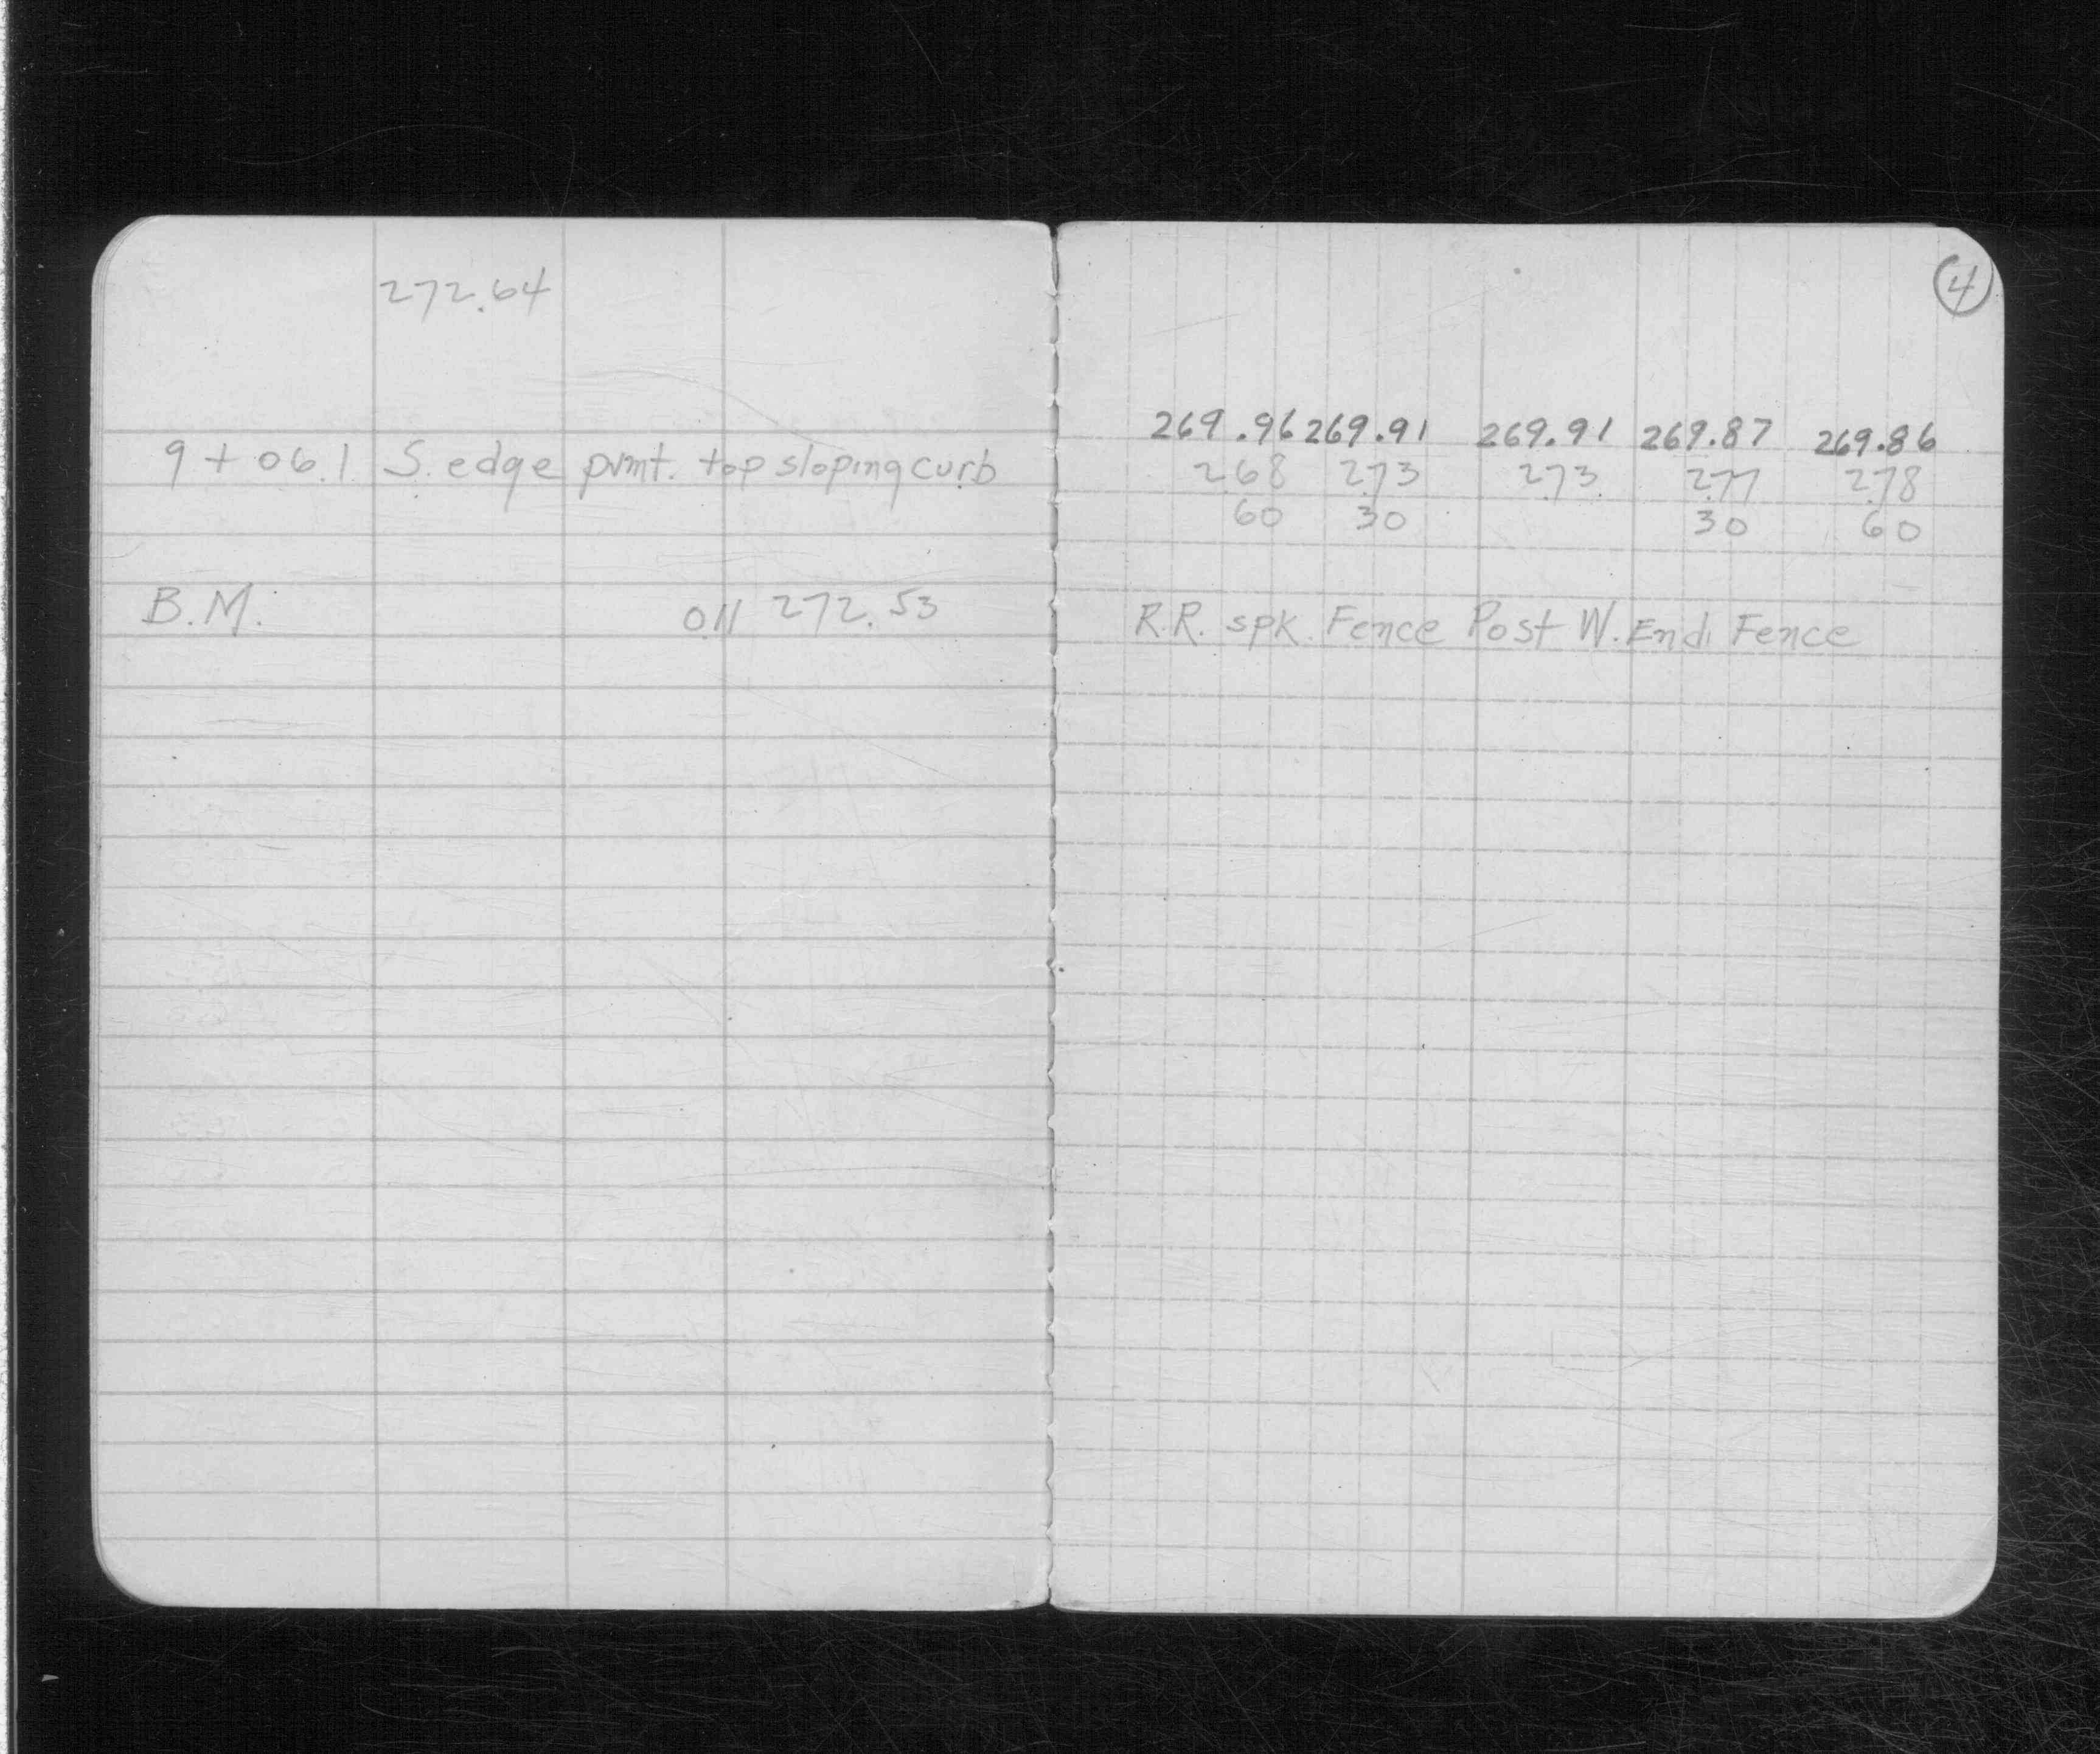 272.64
9 + 06.1 S. edge pvmt. top sloping curb
B.M. 0.11 272.53
4
269.96 269.91 269.91 269.87 269.86
2.68 2.73 2.73 2.77 2.78
60 30 30 60
R.R. spk. Fence Post W. End Fence